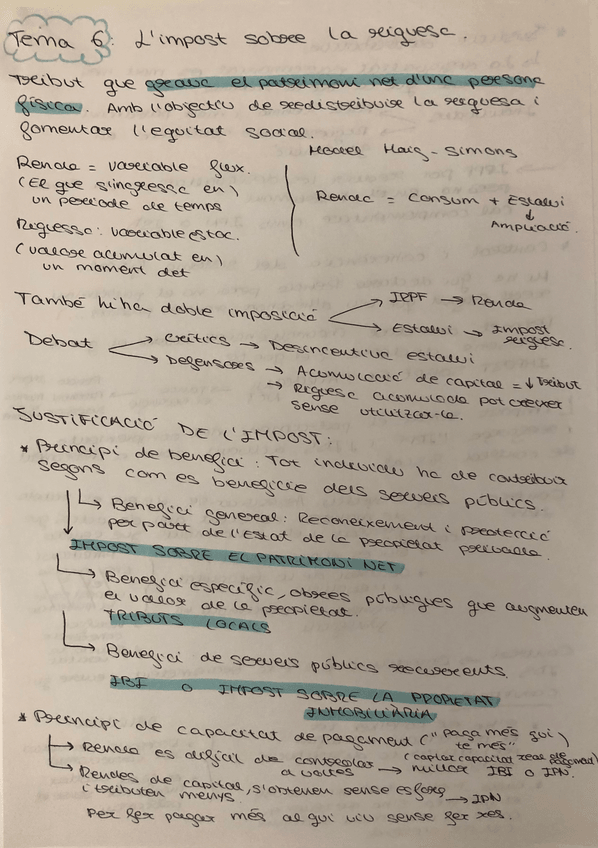 Tema 6: L'impost sobre la riquesa.
Tribut que grava el patrimoni net d'una persona
física. Amb l'objectiu de redistribuir la riquesa i
fomentar l'equitat social.
Model Haig-Simons
Renda = variable flux.
(El que s'ingressa en)
un periode de temps
Renda = Consum + Estalvi
↓
Ampliació.
Riquesa: variable estoc.
(valor acumulat en)
un moment det
També hi ha doble imposició → IRPF → Renda
→ Estalvi → Impost
riquesa.
Debat → Crítics → Desincentiva estalvi
→ Defensors → Acumulació de capital = ↓ tribut
→ Riquesa acumulada pot créixer
sense utilitzar-la.
JUSTIFICACIÓ DE L'IMPOST:
* Principi de benefici: Tot individu ha de contribuir
segons com es beneficie dels serveis públics.
→ Benefici general: Reconeixement i protecció
per part de l'Estat de la propietat privada.
IMPOST SOBRE EL PATRIMONI NET
→ Benefici específic, obres públiques que augmenten
el valor de la propietat.
TRIBUTS LOCALS
→ Benefici de serveis públics recurrents.
IBI O IMPOST SOBRE LA PROPIETAT
INMOBILIÀRIA
* Principi de capacitat de pagament ("paga més qui)
té més"
→ Renda es difícil de controlar (captar capacitat real de
a voltes → millor IBI o IPN.
→ Rendes de capital, s'obtenen sense esforç → IPN
i tributen menys.
Per fer pagar més al qui viu sense fer res.